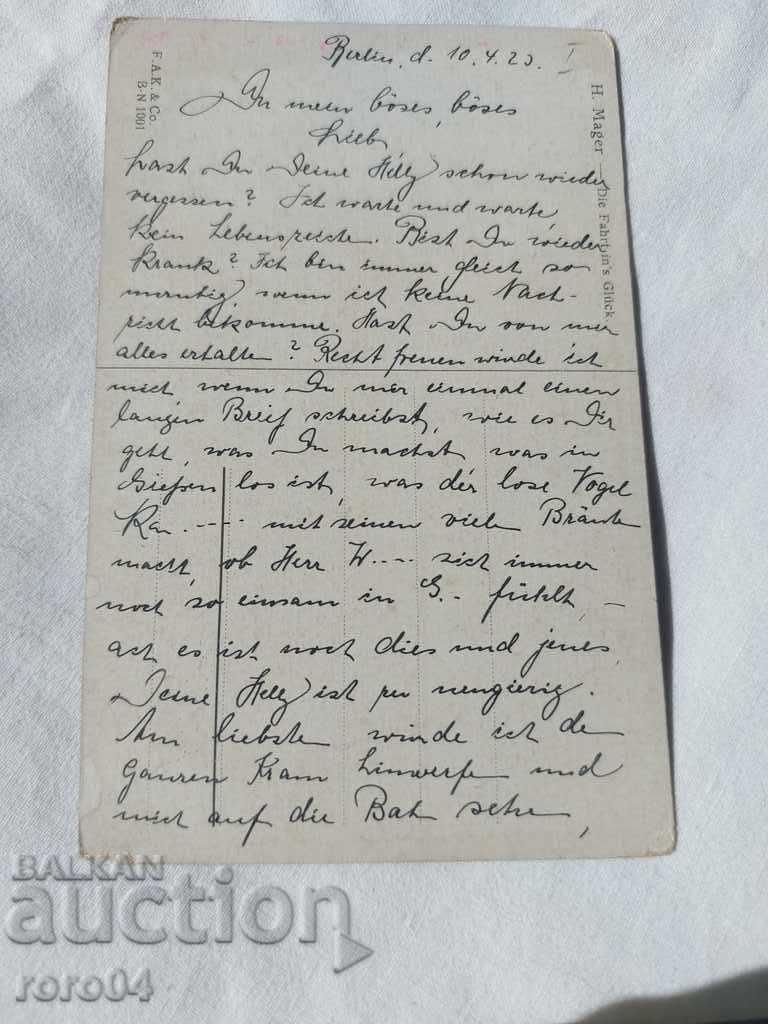 Berlin, d. 10.4.23. I
Du mein böses, böses
Lieb,
hast Du Deine Helly schon wieder
vergessen? Ich warte und warte,
kein Lebenszeichen. Bist Du wieder
krank? Ich bin immer gleich so
unruhig, wenn ich keine Nach-
richt bekomme. Hast Du von mir
alles erhalten? Recht freuen würde ich
mich, wenn Du mir einmal einen
langen Brief schreibst, wie es Dir
geht, was Du machst, was in
Gießen los ist, was der lose Vogel
Ka.---- mit seinen vielen Bräute
macht, ob Herr W---- sich immer
noch so einsam in G.- fühlt, -
ach es ist noch dies und jenes,
Deine Helly ist zu neugierig.
Am liebsten würde ich den
ganzen Kram hinwerfen und
mich auf die Bahn setzen,
F.A.K. & Co.
B-N 1001
H. Mager Die Fahrt in's Glück.
BALKAN
auction
roro04